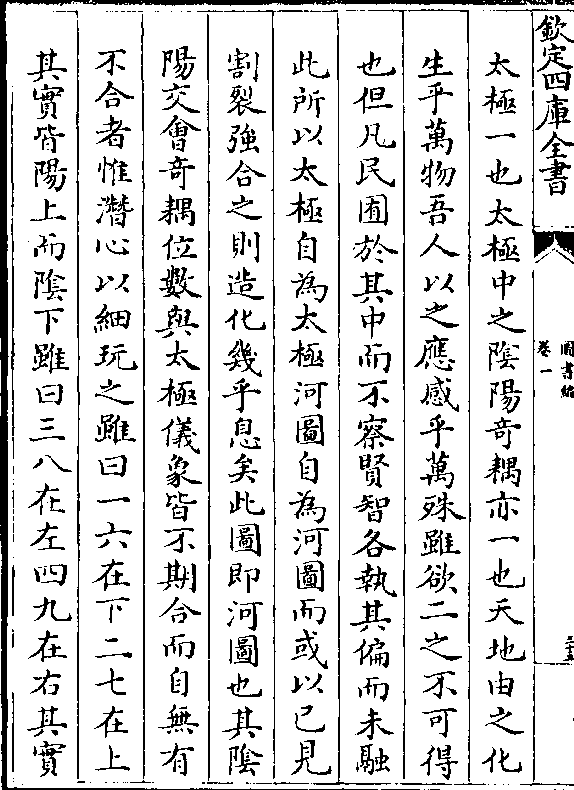 欽定四庫全書
圖書編
卷一
二十五
太極一也太極中之陰陽奇耦亦一也天地由之化
生乎萬物吾人以之應感乎萬殊雖欲二之不可得
也但凡民囿於其中而不察賢智各執其偏而未融
此所以太極自為太極河圖自為河圖而或以已見
割裂強合之則造化幾乎息矣此圖即河圖也其陰
陽交會奇耦位數與太極儀象皆不期合而自無有
不合者惟潛心以細玩之雖曰一六在下二七在上
其實皆陽上而陰下雖曰三八在左四九在右其實